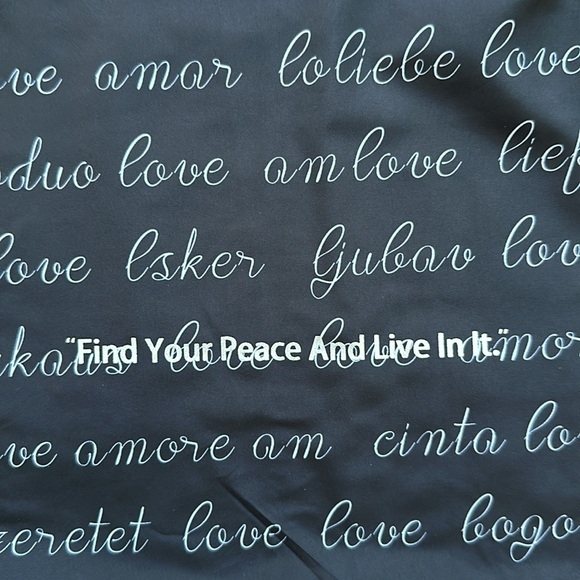 ve amar loliebe love
oduo love am love lief
love Esker ljubav lov
kaus love love amor
"Find Your Peace And Live In It."
ve amore am cinta lo
zeretet love love bogo